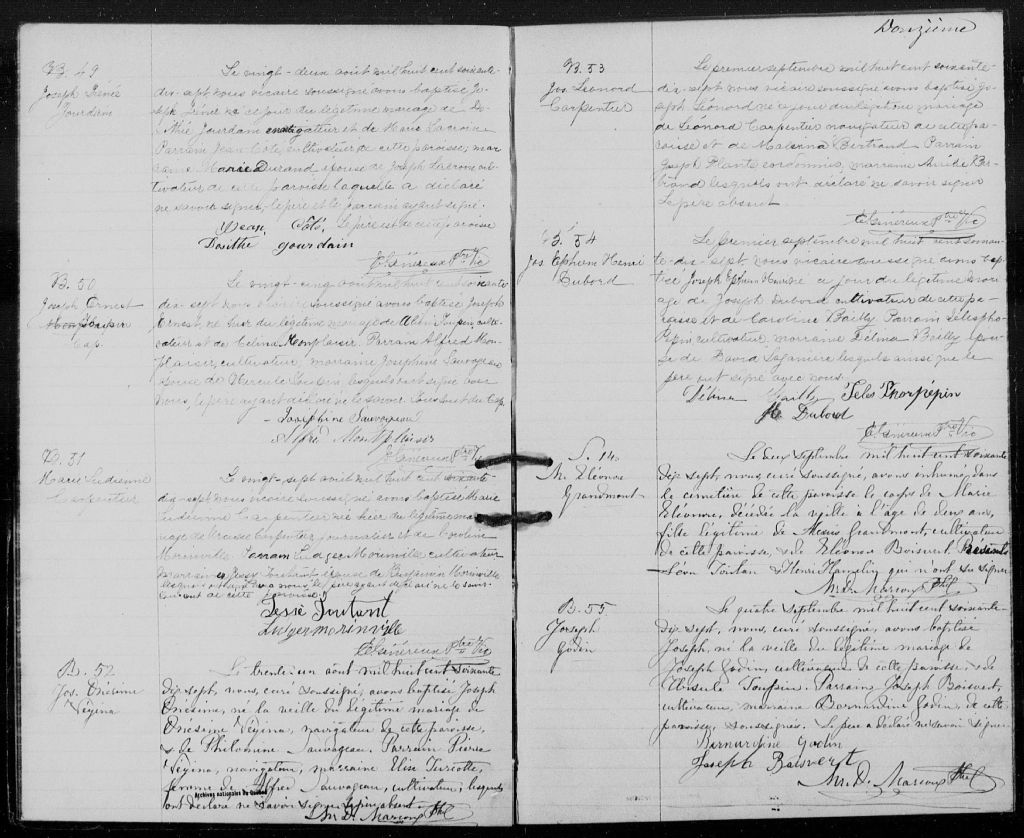 B. 49
Joseph Irénée
Jourdain
Le vingt-deux août mil huit cent soixante-
dix-sept nous vicaire soussigné avons baptisé Jo-
seph né ce jour du légitime mariage de
Jourdain et de Marie
Parrain Jean Côté, cultivateur de cette paroisse, mar-
raine Marie Durand épouse de Joseph cul-
tivateur de cette paroisse laquelle a déclaré
ne savoir signer, le père et le parrain ayant signé.
Le père est de cette paroisse
Jean Côté
Dosithé Jourdain
E. Généreux Ptre Vic
B. 50
Joseph Ernest
Toupin
Cap.
Le vingt-cinq août mil huit cent soixante
dix-sept nous vicaire soussigné avons baptisé Joseph
Ernest, né hier du légitime mariage de Toupin culti-
vateur et de Célina Monplaisir. Parrain Alfred Mon-
plaisir, cultivateur, marraine Josephine Sauvageau
épouse de Hercule Toupin lesquels ont signé avec
nous, le père ayant déclaré ne le savoir. Tous sont du Cap.
Joséphine Sauvageau
Alfred Montplaisir
E. Généreux Ptre Vic
B. 51
Marie Ludienne
Carpentier
Le vingt-sept août mil huit cent soixante-
dix-sept nous vicaire soussigné avons baptisé Marie
Ludienne Carpentier né hier du légitime ma-
riage de Carpentier, journalier et de Caroline
Morinville. Parrain Ludger Morinville cultivateur
marraine Jessé Toutant épouse de Benjamin Morinville
lesquels ont signé avec nous, le père ayant déclaré ne le savoir
Tous sont de cette paroisse.
Jessé Toutant
Ludger morinville
E. Généreux Ptre Vic
B. 52
Jos. Onésime
Végina
Le trente-un août mil huit cent soixante
dix sept, nous, curé soussigné, avons baptisé Joseph
Onésime, né la veille du légitime mariage de
Onésime Végina, navigateur de cette paroisse,
& de Philomène Sauvageau. Parrain Pierre
Végina, navigateur, marraine Elise Turcotte,
femme de Alfred Sauvageau, cultivateur, lesquels
ont déclaré ne savoir signer. Le père absent.
Archives nationales du Québec
M. D. Marcoux Ptre
Douzième
B. 53
Jos. Léonord
Carpentier
Le premier septembre mil huit cent soixante-
dix-sept nous vicaire soussigné avons baptisé Jo-
seph Léonord né ce jour du légitime mariage
de Léonord Carpentier navigateur de cette pa-
roisse et de Malvina Bertrand Parrain
Joseph Plante cordonnier, marraine Ber-
trand lesquels ont déclaré ne savoir signer
Le père absent
E. Généreux Ptre Vic
B. 54
Jos. Ephrem Henri
Dubord
Le premier septembre mil huit cent soixan-
te-dix-sept nous vicaire soussigné avons bap-
tisé Joseph Ephrem Henri né ce jour du légitime mari-
age de Joseph Dubord cultivateur de cette pa-
roisse et de Caroline Bailly Parrain Télespho-
re Pépin cultivateur, marraine Zélina Bailly épou-
se de David Laganière lesquels ainsi que le
père ont signé avec nous.
Zélina Bailly Téles Phorpépin
Jos Dubord
E. Généreux Ptre Vic
S. 14
M. Eléonore
Grandmont
Le deux septembre mil huit cent soixante
dix sept, nous, curé soussigné, avons inhumé dans
le cimetière de cette paroisse le corps de Marie
Eléonore, décédée la veille à l'âge de deux ans,
fille légitime de Grandmont, cultivateur
de cette paroisse, & de Eléonore Boisvert. Présents
Léon Toutan & Henri Hamelin qui n'ont su signer
M. D. Marcoux Ptre
B. 55
Joseph
Godin
Le quatre septembre mil huit cent soixante-
dix sept, nous, curé soussigné, avons baptisé
Joseph, né la veille du légitime mariage de
Joseph Godin, cultivateur de cette paroisse, & de
Ursule Toupin. Parrain Joseph Boisvert,
cultivateur, marraine Bernardine Godin, de cette
paroisse, soussignés. Le père a déclaré ne savoir signer
Bernardine Godin
Joseph Boisvert
M. D. Marcoux Ptre